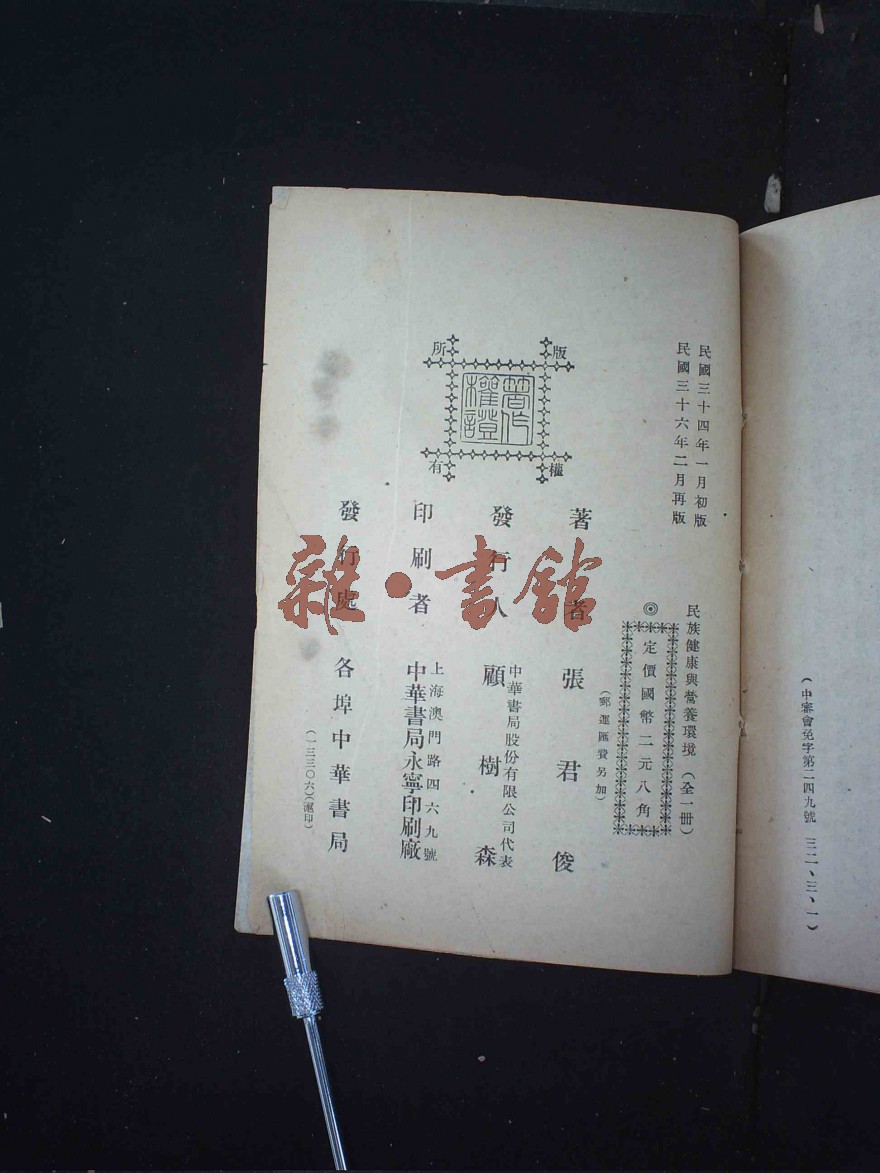 (中審會免字第二四九號 三二、三、一)
民國三十四年一月初版
民國三十六年二月再版
民族健康與營養環境(全一冊)
◎定價國幣二元八角
(郵運匯費另加)
版權所有
著作權證
著者 張君俊
發行人 中華書局股份有限公司代表
顧樹森
印刷者 上海澳門路四六九號
中華書局永寧印刷廠
發行處 各埠中華書局
(一三三〇六)(滬印)
雜·書館